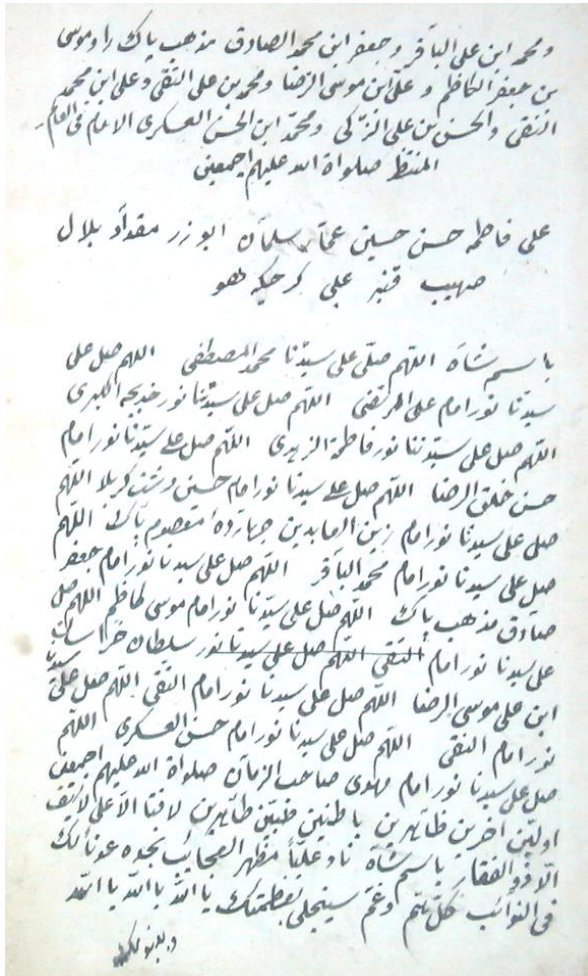 و محمد ابن علی الباقر و جعفر ابن محمد الصادق مذهب پاک را و موسی
بن جعفر الکاظم و علی ابن موسی الرضا و محمد بن علی التقی و علی ابن محمد
النقی و الحسن بن علی الزکی و محمد ابن الحسن العسکری الامام
المنتظر صلواة الله علیهم اجمعین
علی فاطمه حسن حسین عمار سلمان ابوزر مقداد بلال
صهیب قنبر علی هو
باسم شاه اللهم صلی علی سیدنا محمد المصطفی اللهم صل علی
سیدنا نور امام علی المرتضی اللهم صل علی سیدتنا نور خدیجه الکبری
اللهم صل علی سیدتنا نور فاطمة الزهری اللهم صل علی سیدنا نور امام
حسن خلق الرضا اللهم صل علی سیدنا نور امام حسین دشت کربلا اللهم
صل علی سیدنا نور امام زین العابدین چهارده معصوم پاک اللهم
صل علی سیدنا نور امام محمد الباقر اللهم صل علی سیدنا نور امام جعفر
صادق مذهب پاک اللهم صل علی سیدنا نور امام موسی کاظم اللهم صل
علی سیدنا نور امام التقی اللهم صل علی سیدنا نور سلطان خراسان
ابن علی موسی الرضا اللهم صل علی سیدنا نور امام التقی اللهم صل علی سیدنا
نور امام النقی اللهم صل علی سیدنا نور امام حسن العسکری اللهم
صل علی سیدنا نور امام مهدی صاحب الزمان صلواة الله علیهم اجمعین
اولین اخرین ظاهرین باطنین طیبین طاهرین لا فتا الا علی لا سیف
الا ذو الفقار باسم شاه ناد علیا مظهر العجائب تجده عونا لک
فی النوائب کل هم و غم سینجلی بعظمتک یا الله یا الله یا الله